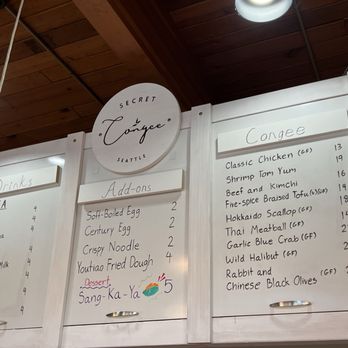 SECRET
Congee
SEATTLE
Drinks
4
4
4
4
Milk 4
4
4
Add-ons
Soft-Boiled Egg 2
Century Egg 2
Crispy Noodle 2
Youtiao Fried Dough 4
Dessert
Sang-Ka-Ya 5
Congee
Classic Chicken (GF) 13
Shrimp Tom Yum 19
Beef and Kimchi 16
Five-spice Braised Tofu (GF)
Hokkaido Scallop (GF)
Thai Meatball (GF)
Garlic Blue Crab (GF)
Wild Halibut (GF)
Rabbit and
Chinese Black Olives (GF)